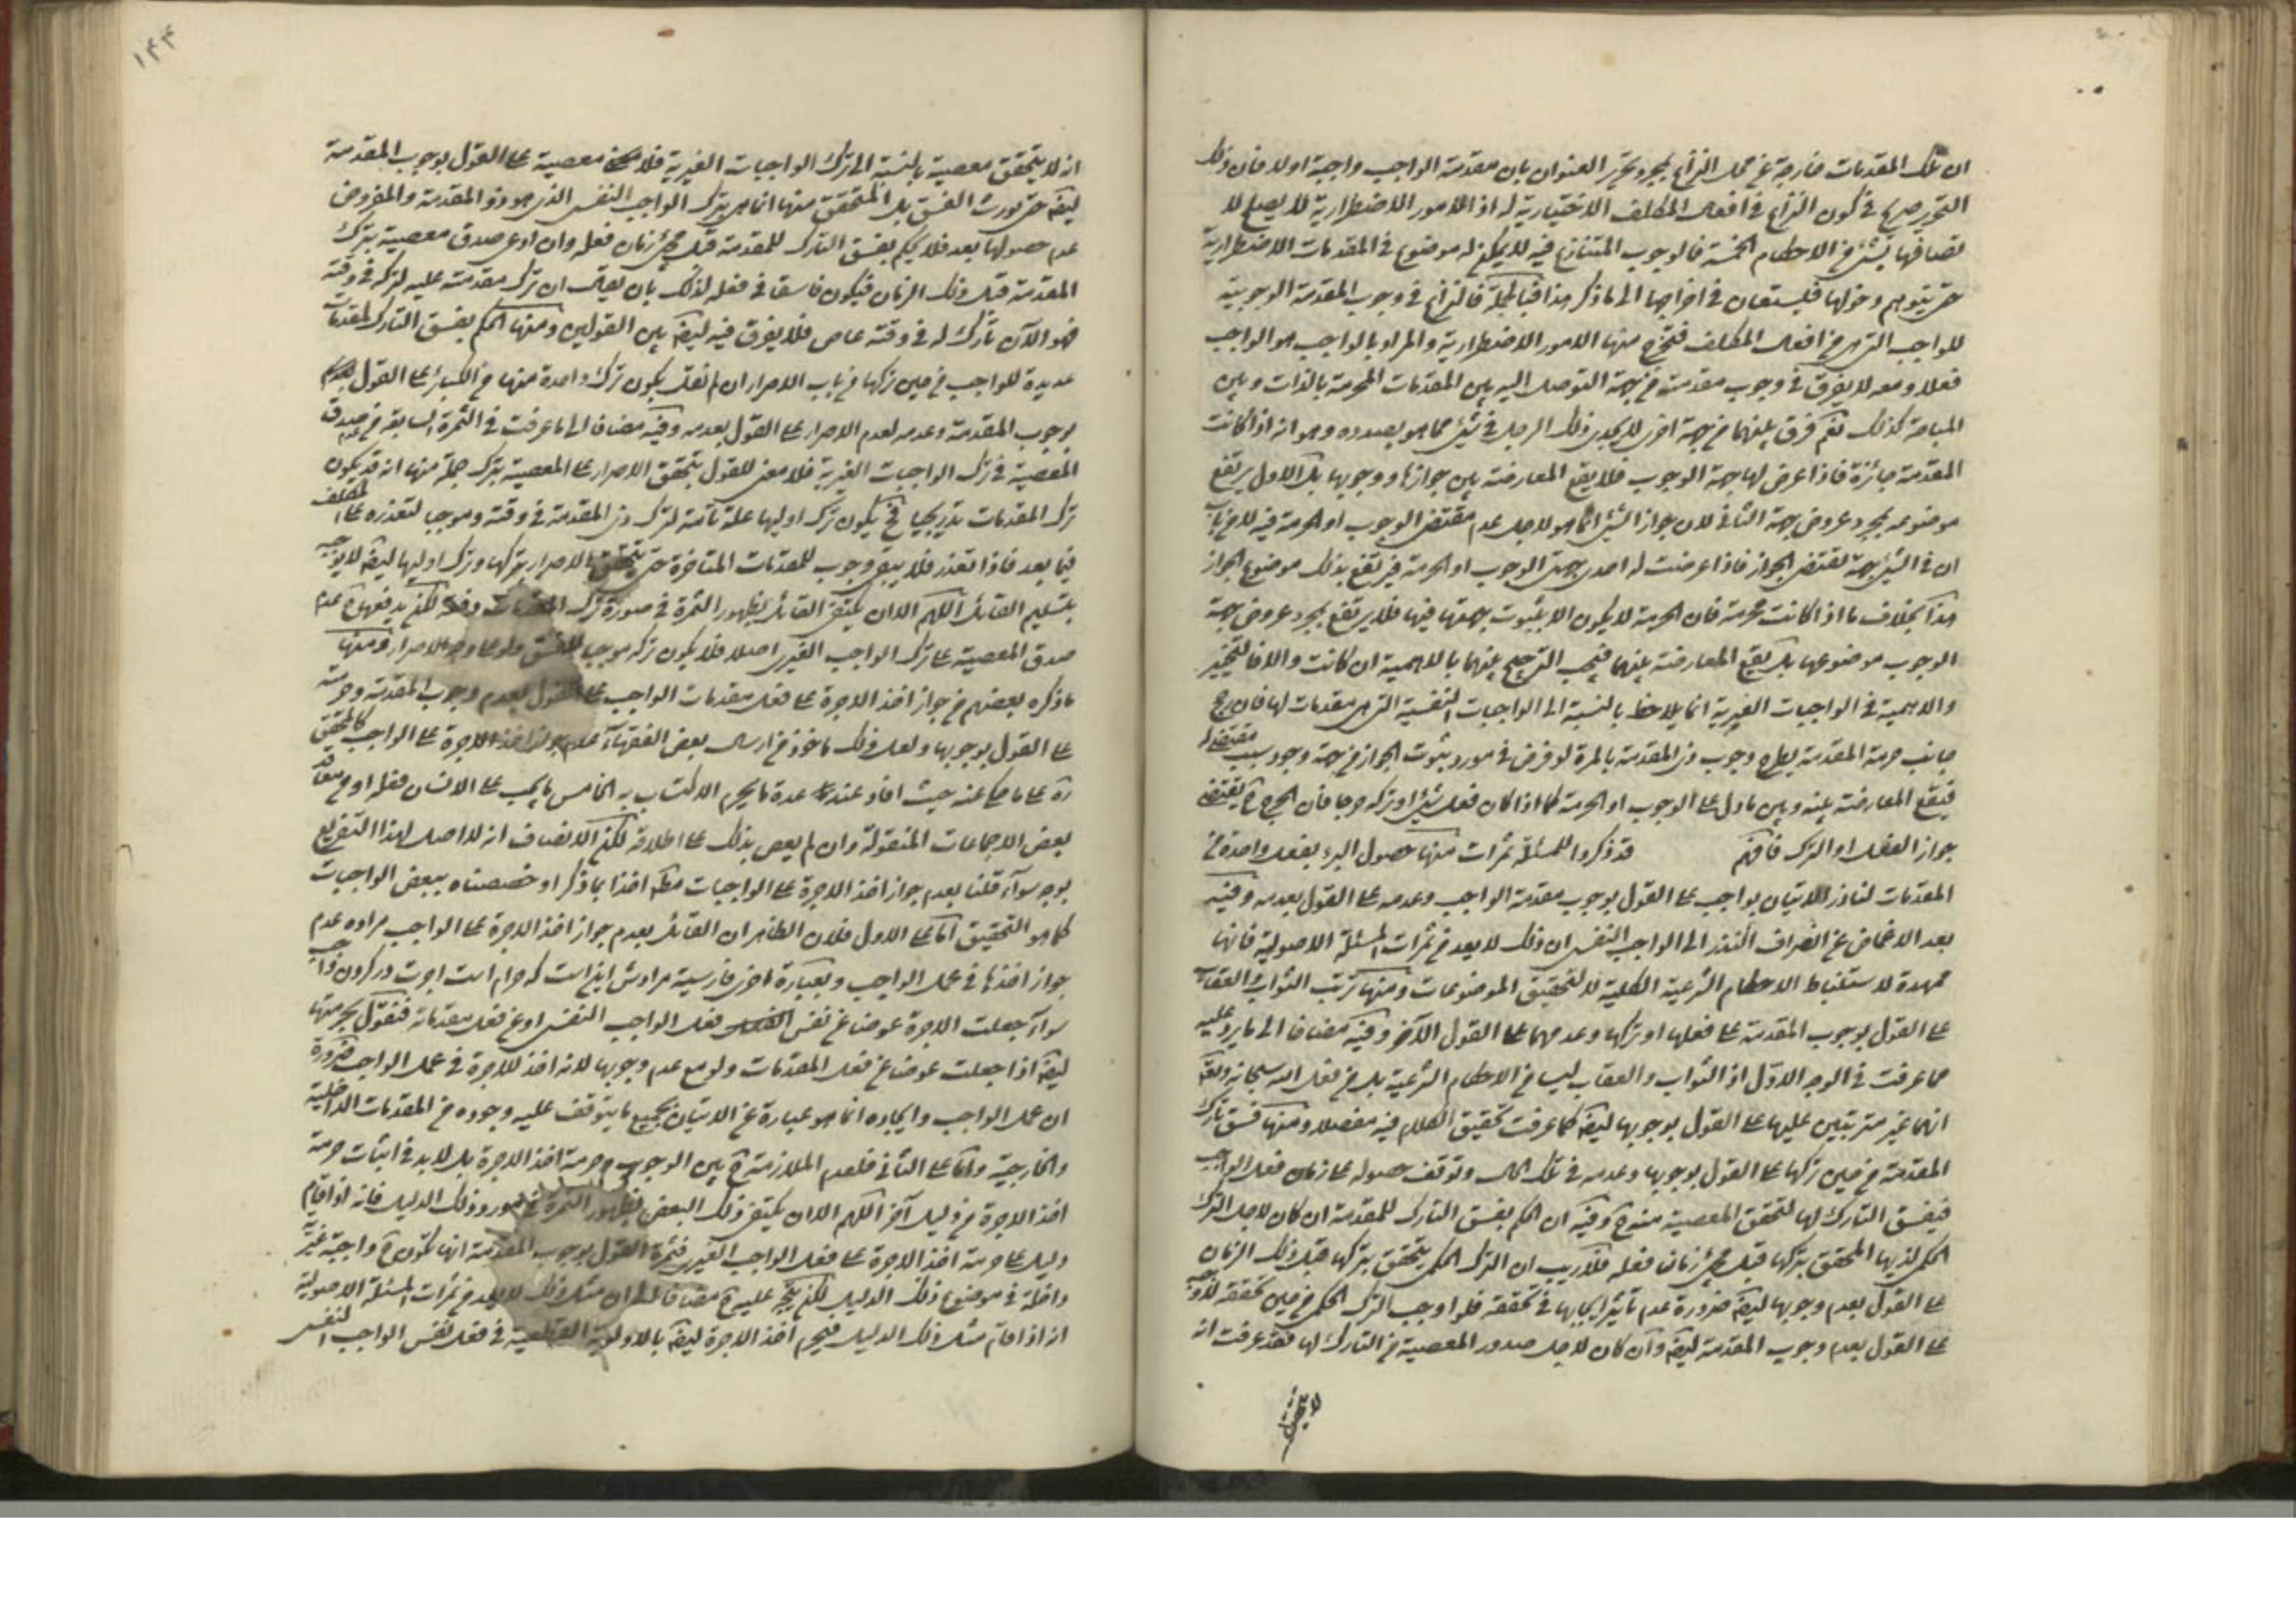 ان تلك المقدمات خارجة عن محل النزاع بمجرد تحرير العنوان بان مقدمة الواجب واجبة اولا فان ذلك
التحرير صريح في كون النزاع في افعال المكلف الاختيارية له اذ الامور الاضطرارية لا يصلح لا
تصافها بشئ من الاحكام الخمسة فالوجوب المتنازع فيه لا يمكن له موضوع في المقدمات الاضطرارية
حتى يتوهم دخولها فيستعان في اخراجها الى ما ذكر هذا فبالجملة فالنزاع في وجوب المقدمة الوجوبية
للواجب التي هي من افعال المكلف فتخرج منها الامور الاضطرارية والمراد بالواجب هو الواجب
فعلا ومعه لا يفرق في وجوب مقدمته من جهة التوصل اليه بين المقدمات المحرمة بالذات وبين
المباحة كذلك نعم فرق بينهما من جهة اخرى لا يجدي ذلك الرجل في شئ مما هو بصدده وهو انه اذا كانت
المقدمة جائزة فاذا عرض لها جهة الوجوب فلا يقع المعارضة بين جوازها ووجوبها بل الاول يرتفع
موضوعه بمجرد عروض جهة الثاني لان جواز الشئ انما هو لاجل عدم مقتضى الوجوب او الحرمة فيه لا من باب
ان في الشئ جهة تقتضي الجواز فاذا عرضت له احدى جهتي الوجوب او الحرمة فيرتفع بذلك موضوع الجواز
هذا بخلاف ما اذا كانت محرمة فان الحرمة لا يكون الا بثبوت جهتها فيها فلا يرتفع بمجرد عروض جهة
الوجوب موضوعها بل يقع المعارضة بينهما فيجب الترجيح بينهما بالاهمية ان كانت والا فالتخيير
والاهمية في الواجبات الغيرية انما يلاحظ بالنسبة الى الواجبات النفسية التي هي مقدمات لها فان رجح
جانب حرمة المقدمة يطرح وجوب ذي المقدمة بالمرة لو فرض في مورد ثبوت الجواز من جهة وجود سبب مقتض له
فيقع المعارضة بينه وبين ما دل على الوجوب او الحرمة كما اذا كان فعل شئ او تركه حرجا فان الحرج ح يقتضي
جواز الفعل او الترك فافهم قد ذكروا للمسئلة ثمرات منها حصول البرء بفعل واحدة من
المقدمات لناذر الاتيان بواجب على القول بوجوب مقدمة الواجب وعدمه على القول بعدمه وفيه
بعد الاغماض عن انصراف النذر الى الواجب النفسي ان ذلك لا يعد من ثمرات المسئلة الاصولية فانها
ممهدة لاستنباط الاحكام الشرعية الكلية لا لتحقيق الموضوعات ومنها ترتب الثواب والعقاب
على القول بوجوب المقدمة على فعلها او تركها وعدمهما على القول الآخر وفيه مضافا الى ما يرد عليه
مما عرفت في الوجه الاول اذ الثواب والعقاب ليسا من الاحكام الشرعية بل من فعل الله سبحانه وتعالى
انهما غير مترتبين عليها على القول بوجوبها ايضا كما عرفت تحقيق الكلام فيه مفصلا ومنها فسق تارك
المقدمة من حين تركها على القول بوجوبها وعدمه في تلك الحال وتوقف حصوله على زمان فعل الواجب
فيفسق التارك لها لتحقق المعصية منه ح وفيه ان الحكم بفسق التارك للمقدمة ان كان لاجل الترك
الحكمي لذيها المحقق بتركها قبل مجئ زمان فعله فلا ريب ان الترك الحكمي يتحقق بتركها قبل ذلك الزمان
على القول بعدم وجوبها ايضا ضرورة عدم تأثير ايجابها في تحققه فلو اوجب الترك الحكمي من حين تحققه لاوجبه
على القول بعدم وجوب المقدمة ايضا وان كان لاجل صدور المعصية من التارك لها فقد عرفت انه
۱۴۴
انه لا يتحقق معصية بالنسبة الى ترك الواجبات الغيرية فلا معصية على القول بوجوب المقدمة
ايضا حتى يورث الفسق بل المتحقق منها انما هي بترك الواجب النفسي الذي هو ذو المقدمة والمفروض
عدم حصولها بعد فلا يحكم بفسق التارك للمقدمة قبل مجئ زمان فعله وان ادعى صدق معصية بترك
المقدمة قبل ذلك الزمان فيكون فاسقا في فعله لذلك بان يقال ان ترك مقدمته عليه لتركه في وقته
فهو الآن تارك له في وقته عاص فلا يفرق فيه ايضا بين القولين ومنها الحكم بفسق التارك لمقدمات
عديدة للواجب من حين تركها من باب الاصرار ان لم نقل بكون ترك واحدة منها من الكبائر على القول
بوجوب المقدمة وعدمه لعدم الاصرار على القول بعدمه وفيه مضافا الى ما عرفت في الثمرة السابقة من عدم صدق
المعصية في ترك الواجبات الغيرية فلا معنى للقول بتحقق الاصرار على المعصية بترك جملة منها انه قد يكون
ترك المقدمات تدريجيا ح يكون ترك اوليها علة تامة لترك ذي المقدمة في وقته وموجبا لتعذره على المكلف
فيما بعد فاذا تعذر فلا يبقى وجوب للمقدمات المتاخرة حتى يتحقق الاصرار بتركها وترك اوليها ايضا لا يوجب
بتسليم القائل اللهم الا ان يكتفي القائل بظهور الثمرة في صورة ترك المقدمات دفعة لكن يدفعها ح عدم
صدق المعصية على ترك الواجب الغيري اصلا فلا يكون تركه موجبا للفسق ولو على وجه الاصرار ومنها
ما ذكره بعضهم من جواز اخذ الاجرة على فعل مقدمات الواجب على القول بعدم وجوب المقدمة وحرمته
على القول بوجوبها ولعل ذلك ماخوذ من ارسال بعض الفقهاء عدم جواز اخذ الاجرة على الواجب كالمحقق
ره على ما حكي عنه حيث افاد عند عدة ما يحرم الاكتساب به الخامس ما يجب على الانسان فعله او من معاقد
بعض الاجماعات المنقولة وان لم يعص بذلك على اطلاقه لكن الانصاف انه لا اصل لهذا التفريع
بوجه سواء قلنا بعدم جواز اخذ الاجرة على الواجبات مطلقا اخذا بما ذكر او خصصناه ببعض الواجبات
كما هو التحقيق اما على الاول فلان الظاهر ان القائل بعدم جواز اخذ الاجرة على الواجب مراده عدم
جواز اخذها في عمل الواجب وبعبارة اخرى فارسية مرادش اينست كه حرام است اجرت در كردن واجب
سواء جعلت الاجرة عوضا عن نفس فعل الواجب النفسي او عن فعل مقدماته فنقول بحرمتها
ايضا اذا جعلت عوضا عن فعل المقدمات ولو مع عدم وجوبها لانه اخذ للاجرة في عمل الواجب ضرورة
ان عمل الواجب وايجاده انما هو عبارة عن الاتيان بجميع ما يتوقف عليه وجوده من المقدمات الداخلية
والخارجية واما على الثاني فلعدم الملازمة ح بين الوجوب وحرمة اخذ الاجرة بل لا بد في اثبات حرمة
اخذ الاجرة من دليل آخر اللهم الا ان يكتفي ذلك البعض بظهور الثمرة في مورد ذلك الدليل فانه اذا قام
دليل على حرمة اخذ الاجرة على فعل الواجب الغيري فثمرة القول بوجوب المقدمة انها تكون ح واجبة غيرية
داخلة في موضوع ذلك الدليل لكن يتجه عليه ح مضافا الى ان مثل ذلك لا يعد من ثمرات المسئلة الاصولية
انه اذا قام مثل ذلك الدليل فيحرم اخذ الاجرة ايضا بالاولوية القطعية في فعل نفس الواجب النفسي